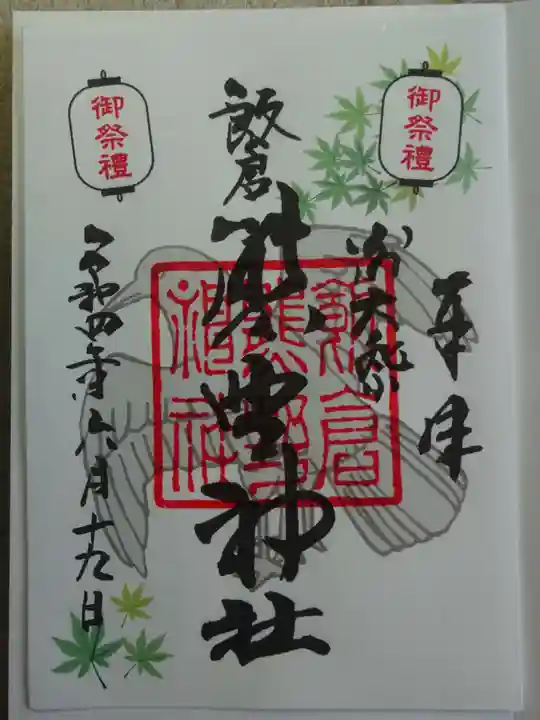 御祭禮
奉拝
例大祭
飯倉
熊野神社
飯倉
熊野
神社
御祭禮
令和四年六月十九日